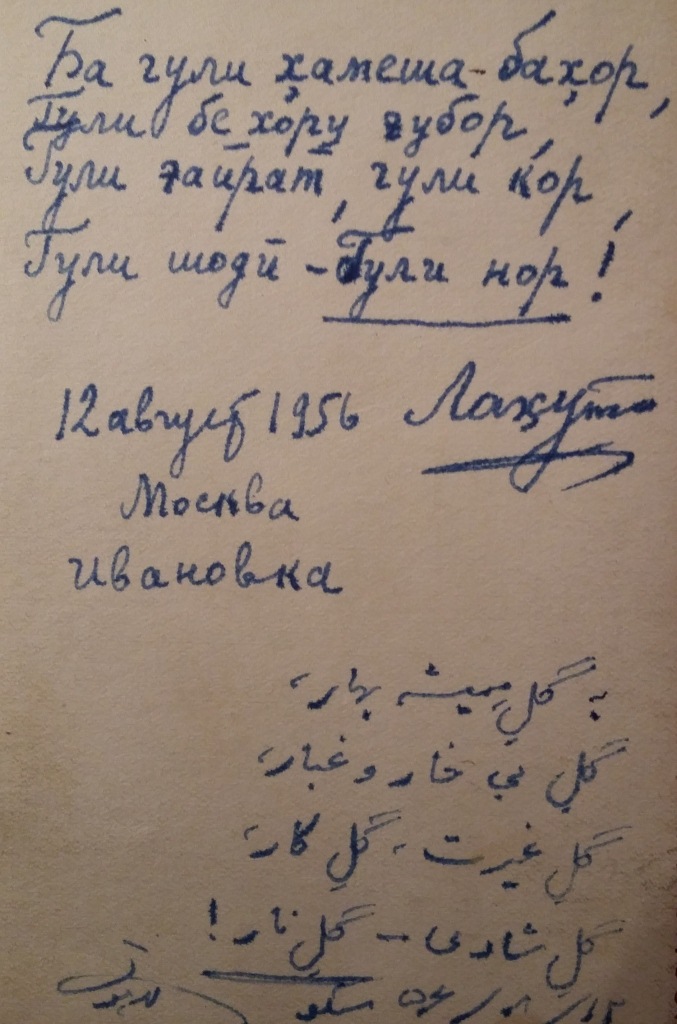 Ба гули ҳамеша-баҳор,
Гули бе хору ғубор,
Гули ғайрат, гули кор,
Гули шодӣ – Гули нор!
12 август 1956 Лоҳутӣ
Москва
Ивановка
به گلِ همیشه بهار،
گلِ بی خار و غبار،
گلِ غیرت، گلِ کار،
گلِ شادی – گلِ نار!
مسکو لاهوتی